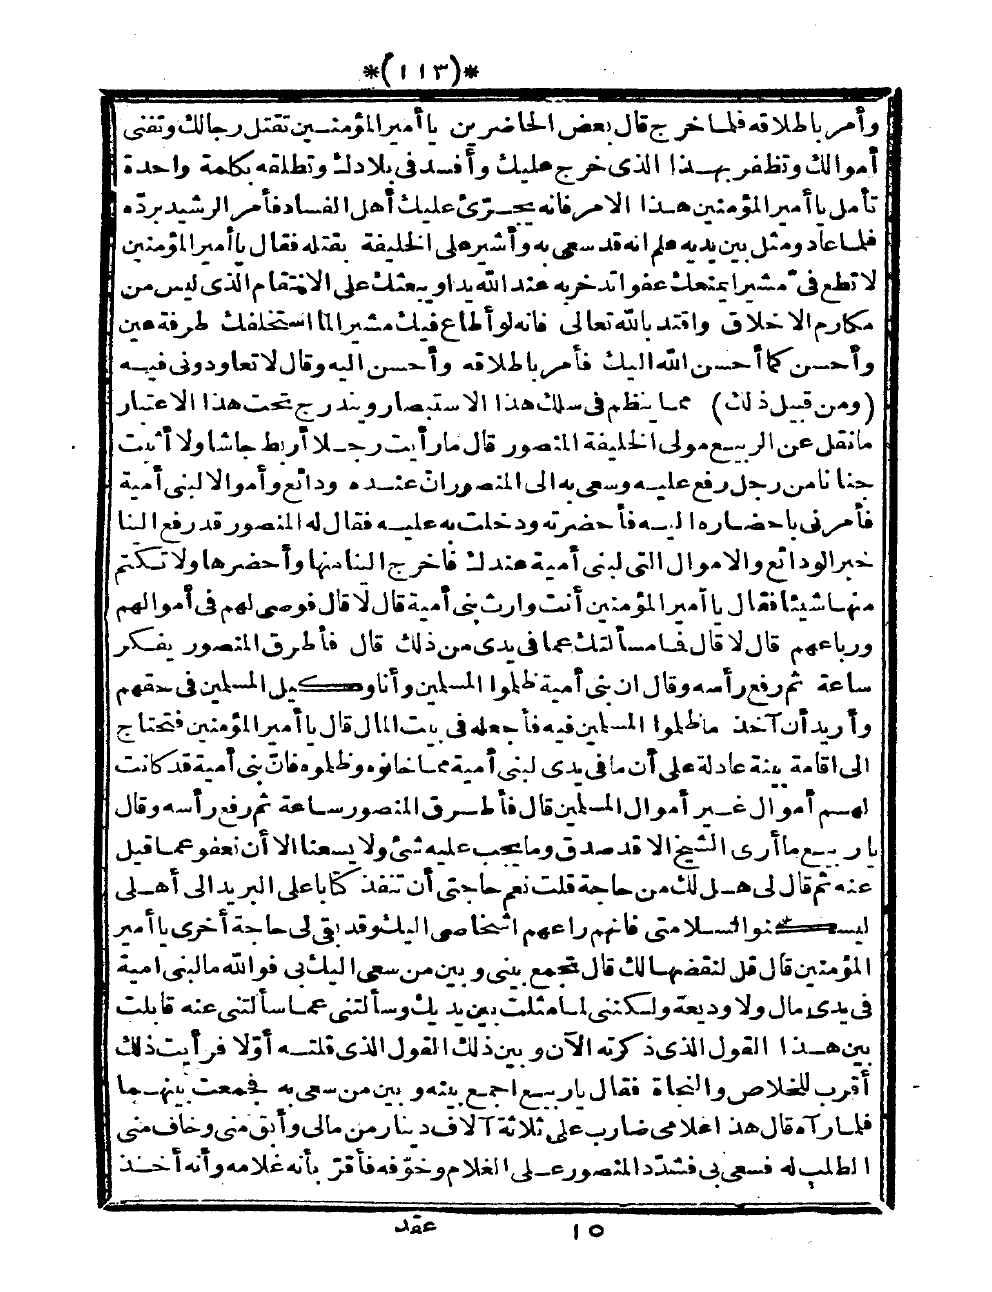 *(١١٣)*
وأمر باطلاقه فلما خرج قال بعض الحاضرين يا أمير المؤمنين تقتل رجالك وتفنى
أموالك وتظفر بهذا الذى خرج عليك وأفسد فى بلادك وتطلقه بكلمة واحدة
تأمل يا أمير المؤمنين هذا الامر فانه يجرّئ عليك أهل الفساد فأمر الرشيد بردّه
فلما عاد ومثل بين يديه علم انه قد سعى به وأشير على الخليفة بقتله فقال يا أمير المؤمنين
لا تطع فىّ مشيرا يمنعك عفوا تدخر به عند الله يدا ويبعثك على الانتقام الذى ليس من
مكارم الاخلاق واقتد بالله تعالى فانه لو أطاع فيك مشيرا لما استخلفك طرفة عين
وأحسن كما أحسن الله اليك فأمر باطلاقه وأحسن اليه وقال لا تعاودونى فيه
(ومن قبيل ذلك) مما ينظم فى سلك هذا الاستبصار ويندرج تحت هذا الاعتبار
ما نقل عن الربيع مولى الخليفة المنصور قال ما رأيت رجلا أربط جاشا ولا أثبت
جنانا من رجل رفع عليه وسعى به الى المنصور انّ عنده ودائع وأموالا لبنى أمية
فأمرنى باحضاره اليه فأحضرته ودخلت به عليه فقال له المنصور قد رفع الينا
خبر الودائع والاموال التى لبنى أمية عندك فاخرج الينا منها وأحضرها ولا تكتم
منها شيئا فقال يا أمير المؤمنين أنت وارث بنى أمية قال لا قال فوصى لهم فى أموالهم
ورباعهم قال لا قال فما مسألتك عما فى يدى من ذلك قال فأطرق المنصور يفكر
ساعة ثم رفع رأسه وقال ان بنى أمية ظلموا المسلمين وأنا وكيل المسلمين فى حقهم
وأريد أن آخذ ما ظلموا المسلمين فيه فأجعله فى بيت المال قال يا أمير المؤمنين فتحتاج
الى اقامة بينة عادلة على أن ما فى يدى لبنى أمية مما خانوه وظلموه فانّ بنى أمية قد كانت
لهم أموال غير أموال المسلمين قال فأطرق المنصور ساعة ثم رفع رأسه وقال
يا ربيع ما أرى الشيخ الا قد صدق وما يجب عليه شئ ولا يسعنا الا أن نعفو عما قيل
عنه ثم قال لى هل لك من حاجة قلت نعم حاجتى أن تنفذ كتابا على البريد الى أهلى
ليسكنوا لسلامتى فانهم راعهم اشخاصى اليك وقد بقى لى حاجة أخرى يا أمير
المؤمنين قال قل لنقضها لك قال تجمع بينى وبين من سعى اليك بى فوالله ما لبنى امية
فى يدى مال ولا وديعة ولكننى لما مثلت بين يديك وسألتنى عما سألتنى عنه قابلت
بين هذا القول الذى ذكرته الآن وبين ذلك القول الذى قلته أوّلا فرأيت ذلك
أقرب للخلاص والنجاة فقال يا ربيع اجمع بينه وبين من سعى به فجمعت بينهما
فلما رآه قال هذا غلامى ضارب على ثلاثة آلاف دينار من مالى وأبق منى وخاف منى
الطلب له فسعى بى فشدّد المنصور على الغلام وخوّفه فأقرّ بأنه غلامه وأنه أخذ
١٥ عقد